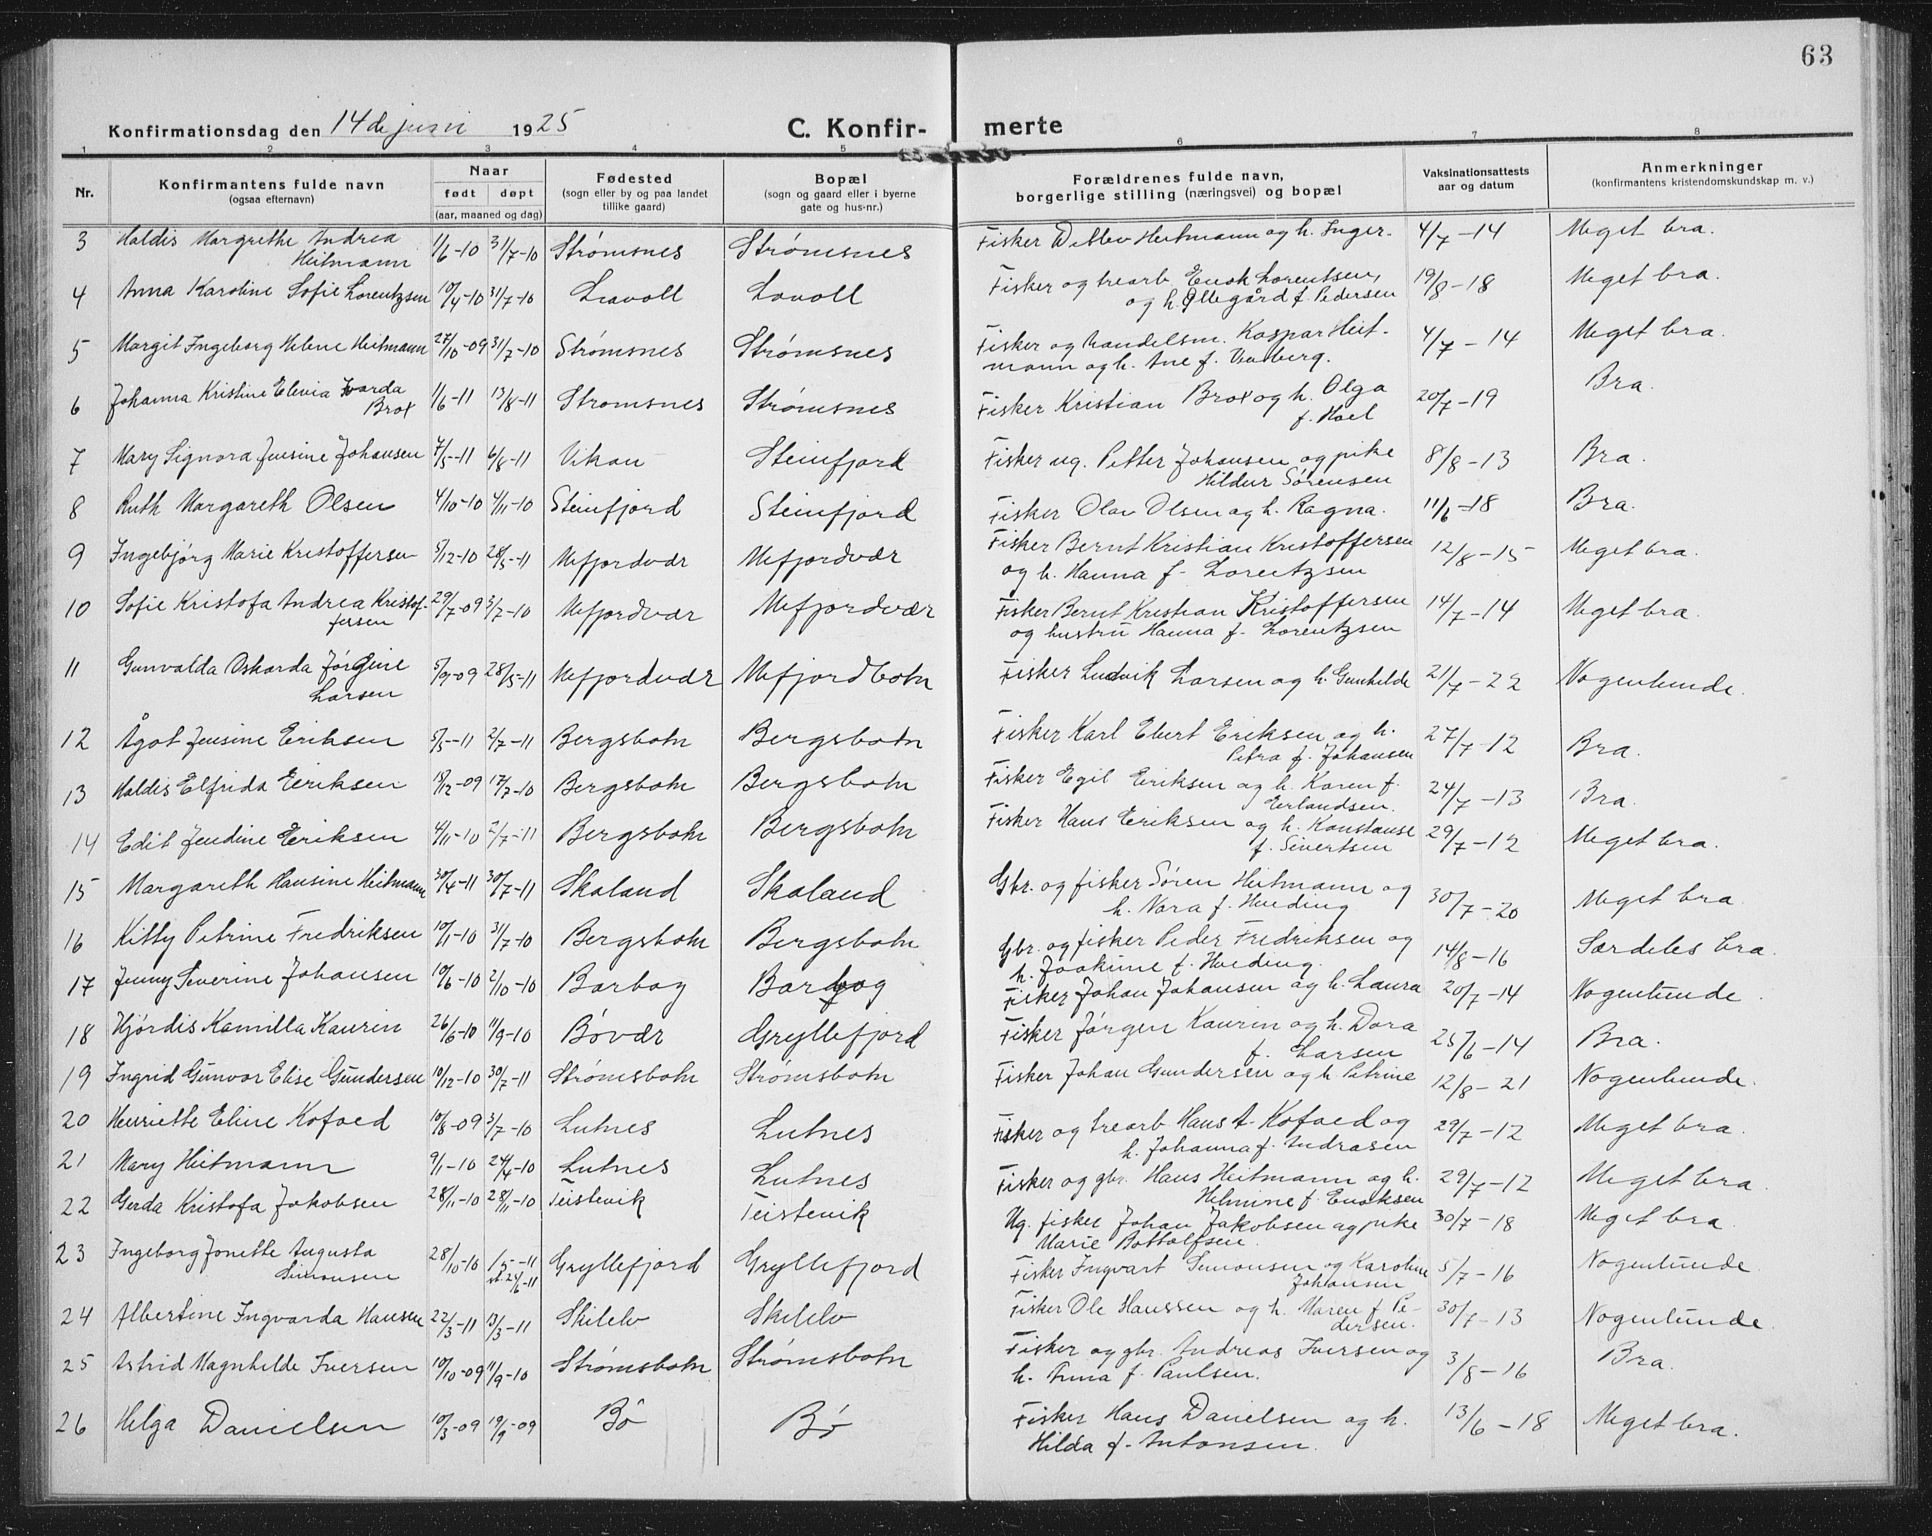 63
Konfirmationsdag den 14 de juni 1925 C. Konfir- merte
1 2 3 4 5 6 7 8
Nr. Konfirmantens fulde navn (ogsaa efternavn) Naar født døpt (aar, maaned og dag) Fødested (sogn eller by og paa landet tillike gaard) Bopæl (sogn og gaard eller i byerne gate og hus-nr.) Forældrenes fulde navn, borgerlige stilling (næringsvei) og bopæl Vaksinationsattests aar og datum Anmerkninger (konfirmantens kristendomskundskap m. v.)
3 Haldis Margrethe Andrea Heitmann 1/6-10 31/7-10 Strømsnes Strømsnes Fisker Detlev Heitmann og h. Inger. 4/7-14 Meget bra.
4 Anna Karoline Sofie Lorentzsen 10/4-10 31/7-10 Lavoll Lovoll Fisker og trearb Enok Lorentsen, og h. Ollegård f. Pedersen 19/8-18 Meget bra.
5 Margit Ingeborg Helene Heitmann 27/10-09 31/7-10 Strømsnes Strømsnes Fisker og handelsm. Kaspar Heitmann og h. Ane f. 4/7-14 Meget bra.
6 Johanna Kristine Elenia Brox 1/6-11 13/8-11 Stromsnes Strømsnes Fisker Kristian Brox og h. Olga f. Hoel 20/7-19 Bra.
7 Mary Signora Jensine Johansen 7/5-11 6/8-11 Vikan Steinfjord Fisker ug. Petter Johansen og pike Hildur Sørensen 8/8-13 Bra.
8 Ruth Margareth Olsen 4/10-10 4/11-10 Steinfjord Steinfjord Fisker Olav Olsen og h. Ragna. 11/6-18 Bra.
9 Ingebjørg Marie Kristoffersen 5/12-10 28/5-11 Mefjordvær Mefjordvær Fisker Bernt Kristian Kristoffersen og h. Hanna f. Lorentzsen 12/8-15 Meget bra.
10 Sofie Kristofa Andrea Kristoffersen 29/7-09 3/7-10 Mefjordvær Mefjordvær Fisker Bernt Kristian Kristoffersen og hustru Hanna f. Lorentzsen 14/7-14 Meget bra.
11 Gunvalda Oskarda Jørgine Larsen 5/9-09 28/5-11 Mefjordvær Mefjordbotn Fisker Ludvik Larsen og h. Gunhilde 21/7-22 Nogenlunde.
12 Ågot Jensine Eriksen 5/5-11 2/7-11 Bergsbotn Bergsbotn Fisker Karl Ebert Eriksen og h. Petra f. Johansen 27/7-12 Bra.
13 Haldis Elfrida Eriksen 18/12-09 17/7-10 Bergsbotn Bergsbotn Fisker Egil Eriksen og h. Karen f. Erlandsen. 24/7-13 Bra.
14 Edit Jendine Eriksen 4/11-10 2/7-11 Bergsbotn Bergsbotn Fisker Hans Eriksen og h. Konstanse f. Sivertsen 29/7-12 Meget bra.
15 Margareth Hansine Heitmann 30/4-11 30/7-11 Skaland Skaland Gbr. og fisker Søren Heitmann og h. Nora f. Hveding 30/7-20 Meget bra
16 Kitty Petrine Fredriksen 10/1-10 3/7-10 Bergsbotn Bergsbotn Gbr. og fisker Peder Fredriksen og h. Joakime f. Hveding. 14/8-16 Særdeles bra.
17 Jenny Severine Johansen 10/6-10 2/10-10 Barbog Barbog Fisker Johan Johansen og h. Laura 20/7-14 Nogenlunde.
18 Hjørdis Kamilla Kaurin 26/6-10 11/9-10 Bøvær Gryllefjord Fisker Jørgen Kaurin og h. Dora f. Larsen 25/6-14 Bra.
19 Ingrid Gunvor Elise Gundersen 10/12-10 30/7-11 Strømsbotn Strømsbotn Fisker Johan Gundersen og h Petrine 12/8-21 Nogenlunde.
20 Henriette Eline Kofoed 10/8-09 3/7-10 Lutnes Lutnes Fisker og trearb Hans A. Kofoed og h. Johanna f. Andrasen 29/7-12 Meget bra.
21 Mary Heitmann 9/1-10 24/4-10 Lutnes Lutnes Fisker og gbr. Hans Heitmann og h. Helmine f. Enoksen 29/7-12 Meget bra.
22 Gerda Kristofa Jakobsen 28/11-10 28/11-10 Teistevik Teistevik Ug. fisker Johan Jakobsen og pike Marie Bottolfsen. 30/7-18 Meget bra
23 Ingeborg Jonette Augusta Simonsen 28/10-10 Gryllefjord Gryllefjord Fisker Ingvart Simonsen og Karoline Johansen 5/7-16 Nogenlunde
24 Albertine Ingvarda Hansen 22/3-11 13/3-11 Skilelv Skilelv Fisker Ole Hanssen og h. Maren f. Pedersen. 30/7-13 Nogenlunde.
25 Astrid Magnhilde Iversen 10/10-09 11/9-10 Strømsbotn Strømsbotn Fisker og gbr. Andreas Iversen og h. Anna f. Paulsen. 3/8-16 Bra.
26 Helga Danielsen 10/3-09 19/9-09 Bø Bø Fisker Hans Danielsen og h. Hilda f. Antonsen. 13/6-18 Meget bra.